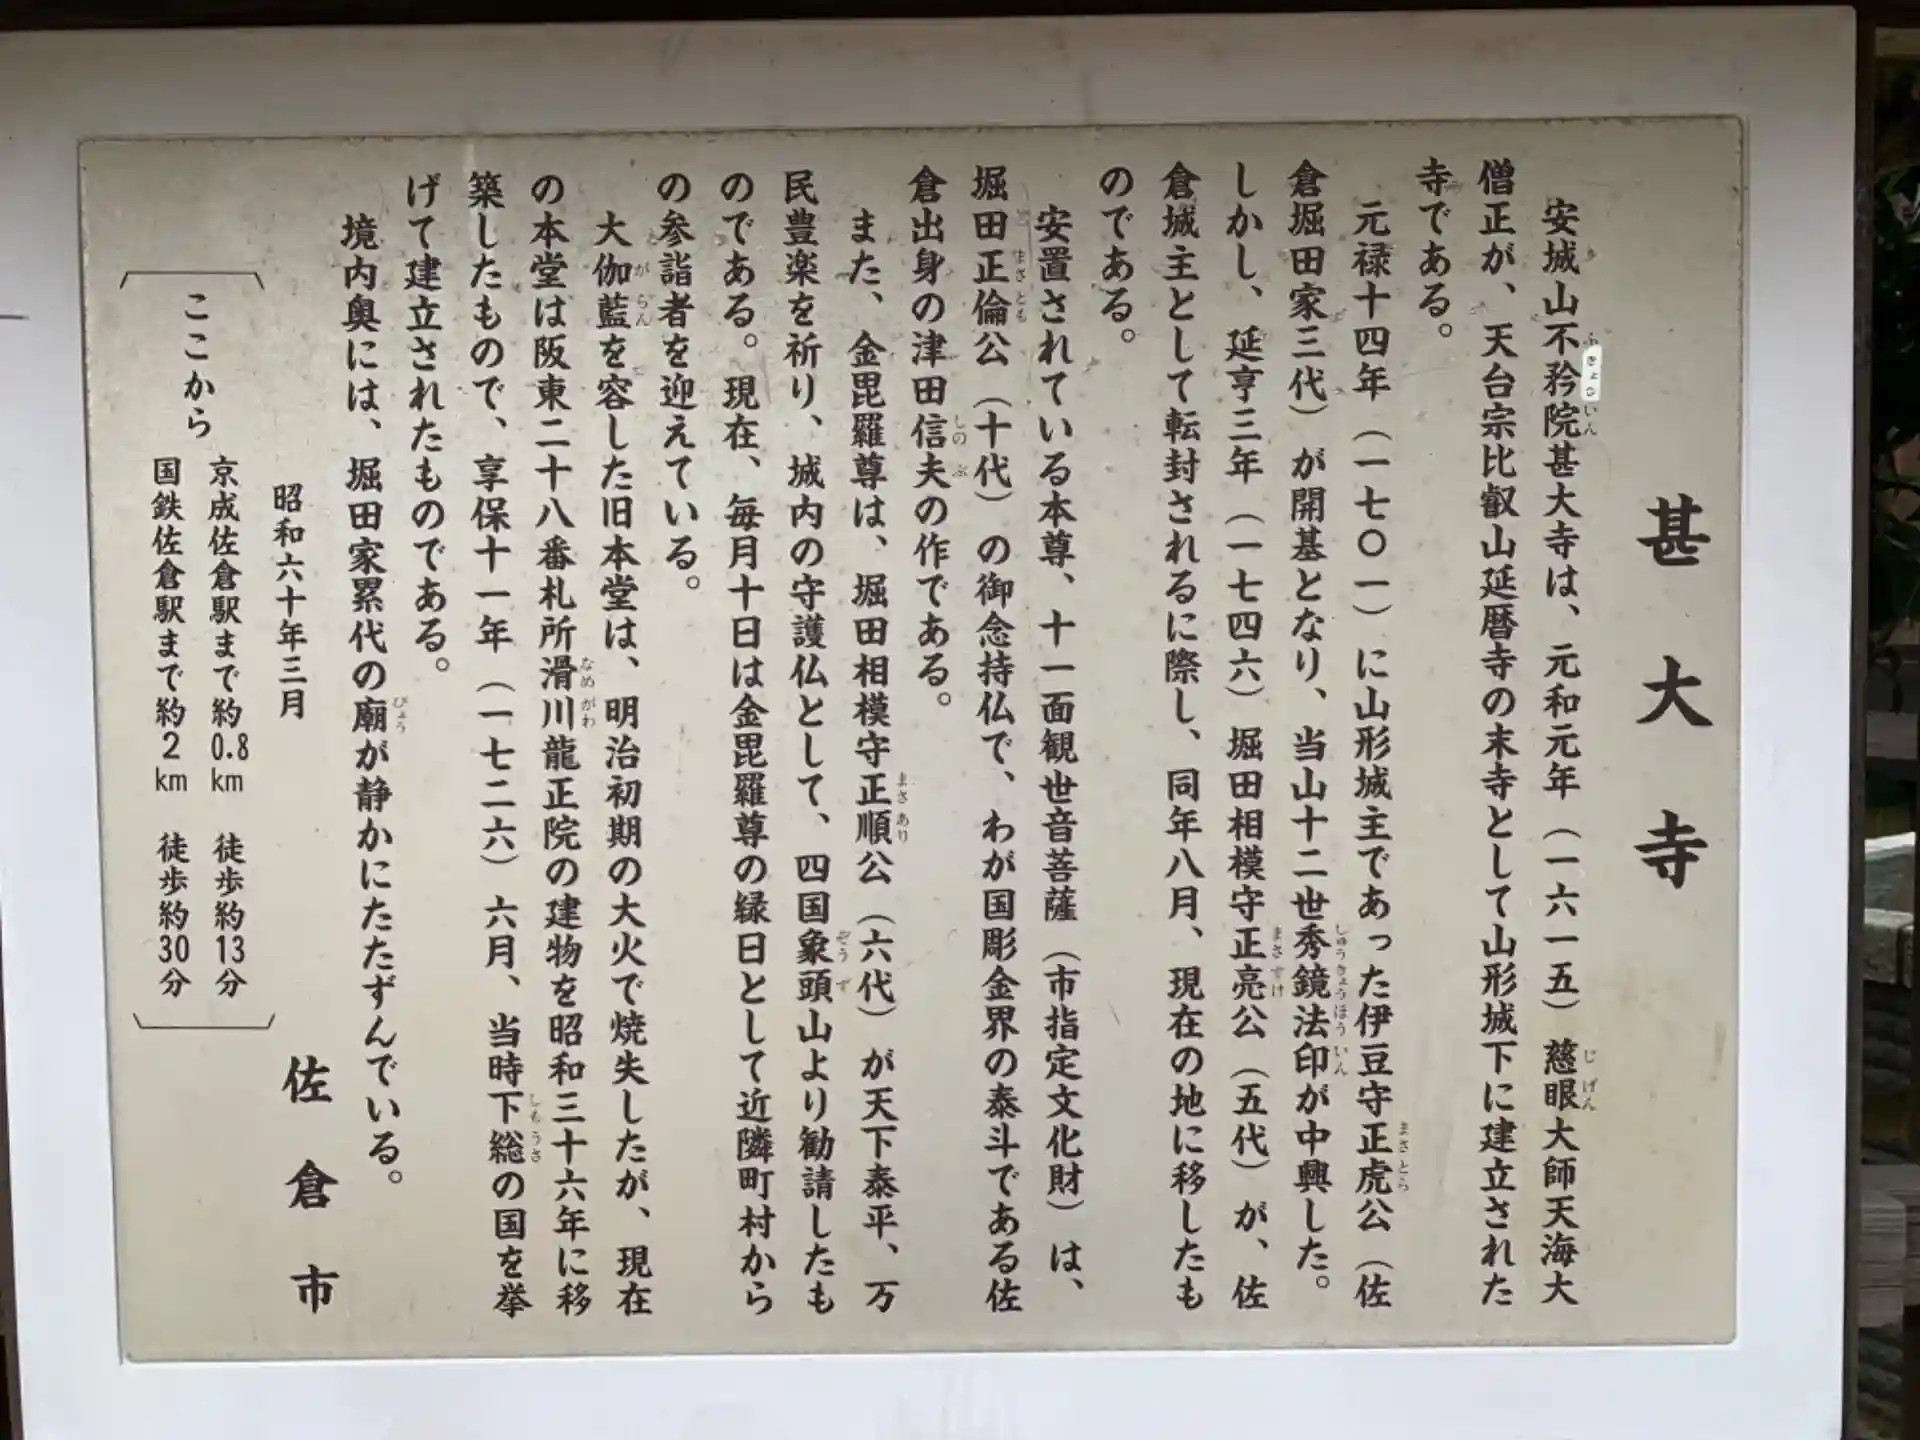 甚大寺
安城山不矜院甚大寺は、元和元年（一六一五）慈眼大師天海大
僧正が、天台宗比叡山延暦寺の末寺として山形城下に建立された
寺である。
元禄十四年（一七〇一）に山形城主であった伊豆守正虎公（佐
倉堀田家三代）が開基となり、当山十二世秀鏡法印が中興した。
しかし、延亨三年（一七四六）堀田相模守正亮公（五代）が、佐
倉城主として転封されるに際し、同年八月、現在の地に移したも
のである。
安置されている本尊、十一面観世音菩薩（市指定文化財）は、
堀田正倫公（十代）の御念持仏で、わが国彫金界の泰斗である佐
倉出身の津田信夫の作である。
また、金毘羅尊は、堀田相模守正順公（六代）が天下泰平、万
民豊楽を祈り、城内の守護仏として、四国象頭山より勧請したも
のである。現在、毎月十日は金毘羅尊の縁日として近隣町村から
の参詣者を迎えている。
大伽藍を容した旧本堂は、明治初期の大火で焼失したが、現在
の本堂は阪東二十八番札所滑川龍正院の建物を昭和三十六年に移
築したもので、享保十一年（一七二六）六月、当時下総の国を挙
げて建立されたものである。
境内奥には、堀田家累代の廟が静かにたたずんでいる。
昭和六十年三月
佐倉市
ここから
京成佐倉駅まで約0.8km 徒歩約13分
国鉄佐倉駅まで約2km 徒歩約30分